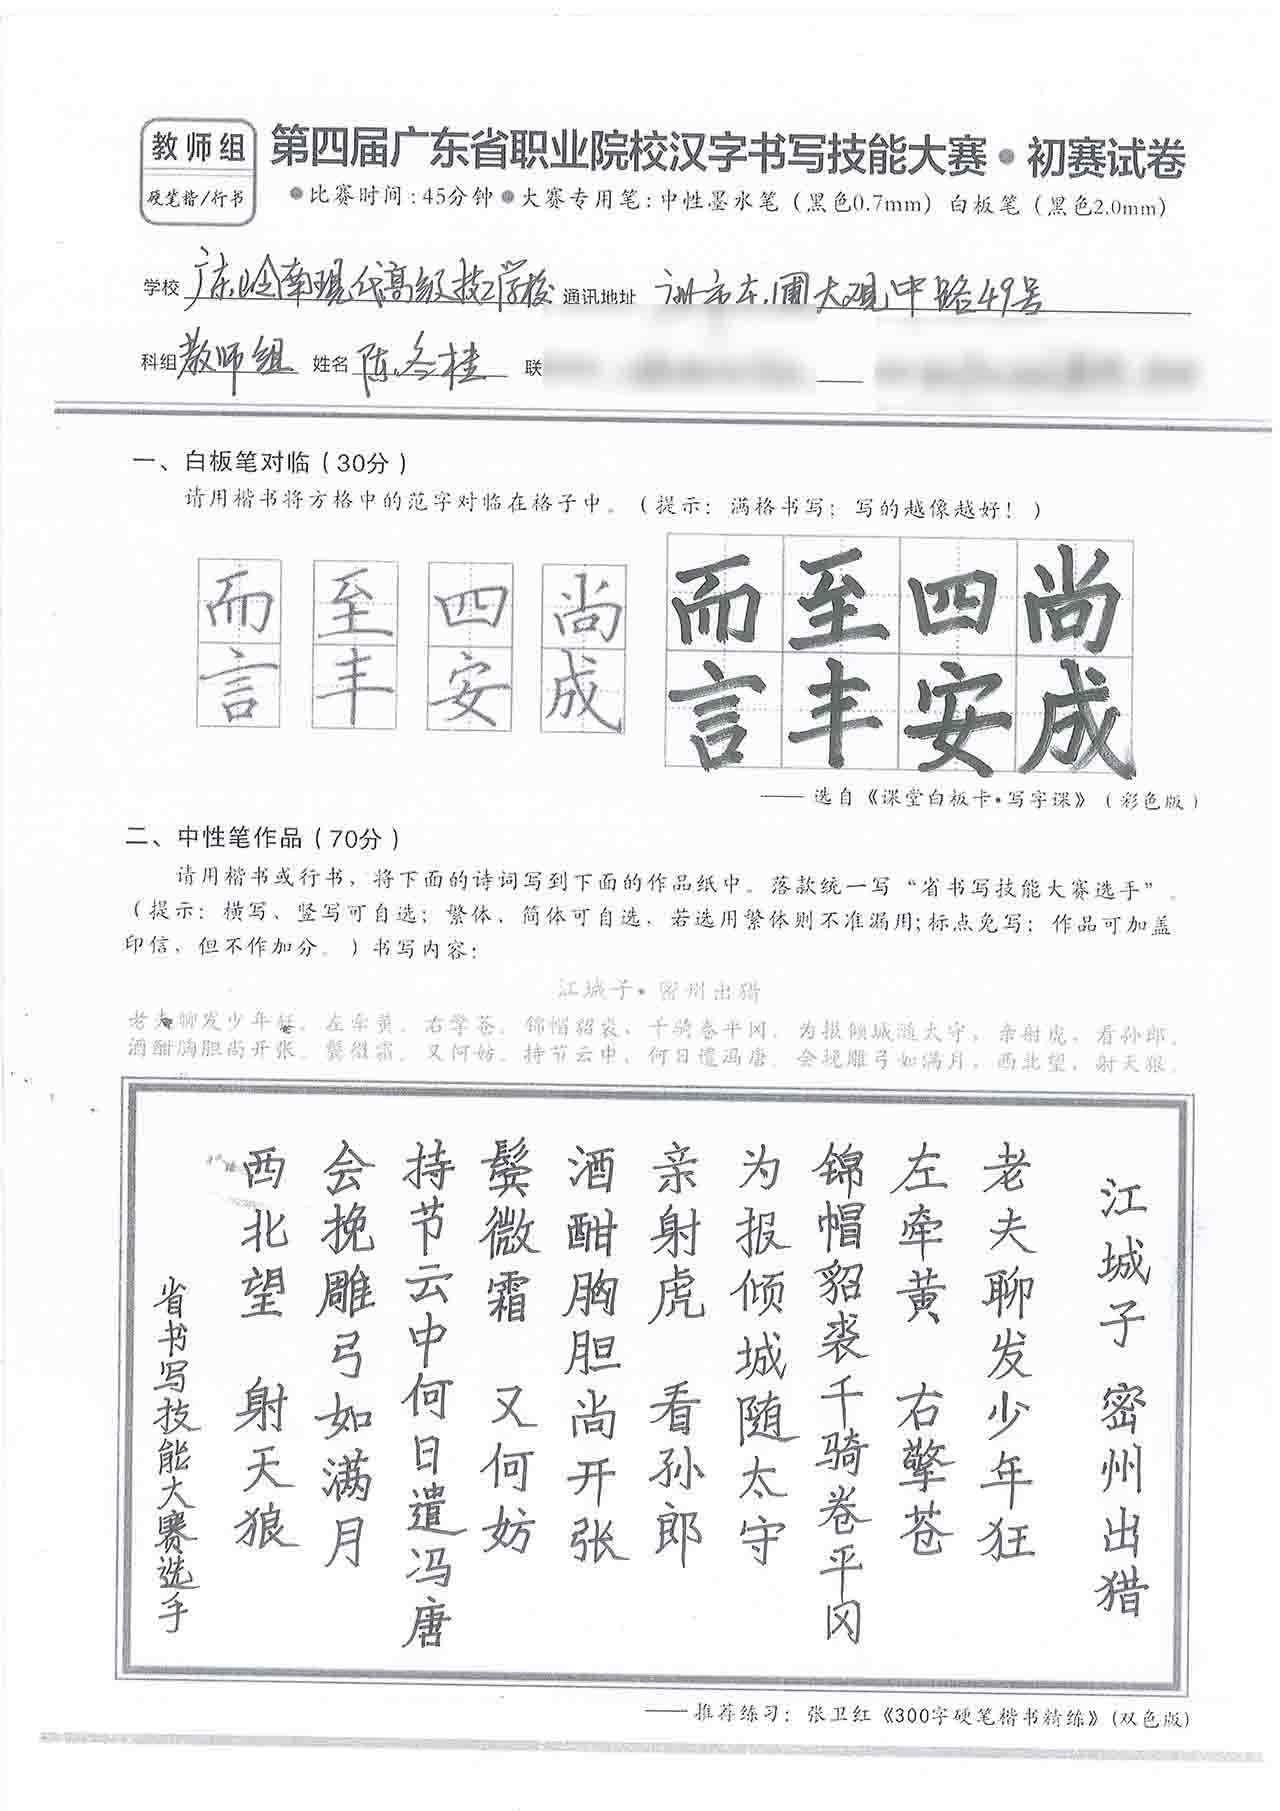 教师组
硬笔楷/行书
第四届广东省职业院校汉字书写技能大赛•初赛试卷
•比赛时间:45分钟•大赛专用笔:中性墨水笔（黑色0.7mm）白板笔（黑色2.0mm）
学校 广东岭南现代高级技工学校 通讯地址 广州市东圃大观中路49号
科组 教师组 姓名 陈冬桂 联
一、白板笔对临（30分）
请用楷书将方格中的范字对临在格子中。（提示：满格书写；写的越像越好！）
而 至 四 尚 而至四尚
言 丰 安 成 言丰安成
——选自《课堂白板卡•写字课》（彩色版）
二、中性笔作品（70分）
请用楷书或行书、将下面的诗词写到下面的作品纸中。落款统一写“省书写技能大赛选手”。
（提示：横写、竖写可自选；繁体、简体可自选，若选用繁体则不准漏用;标点免写；作品可加盖
印信，但不作加分。）书写内容：
江城子•密州出猎
老夫聊发少年狂，左牵黄，右擎苍，锦帽貂裘，千骑卷平冈。为报倾城随太守，亲射虎，看孙郎。
酒酣胸胆尚开张。鬓微霜，又何妨。持节云中，何日遣冯唐。会挽雕弓如满月，西北望，射天狼。
江城子 密州出猎
老夫聊发少年狂
左牵黄 右擎苍
锦帽貂裘千骑卷平冈
为报倾城随太守
亲射虎 看孙郎
酒酣胸胆尚开张
鬓微霜 又何妨
持节云中何日遣冯唐
会挽雕弓如满月
西北望 射天狼
省书写技能大赛选手
——推荐练习：张卫红《300字硬笔楷书精练》(双色版)